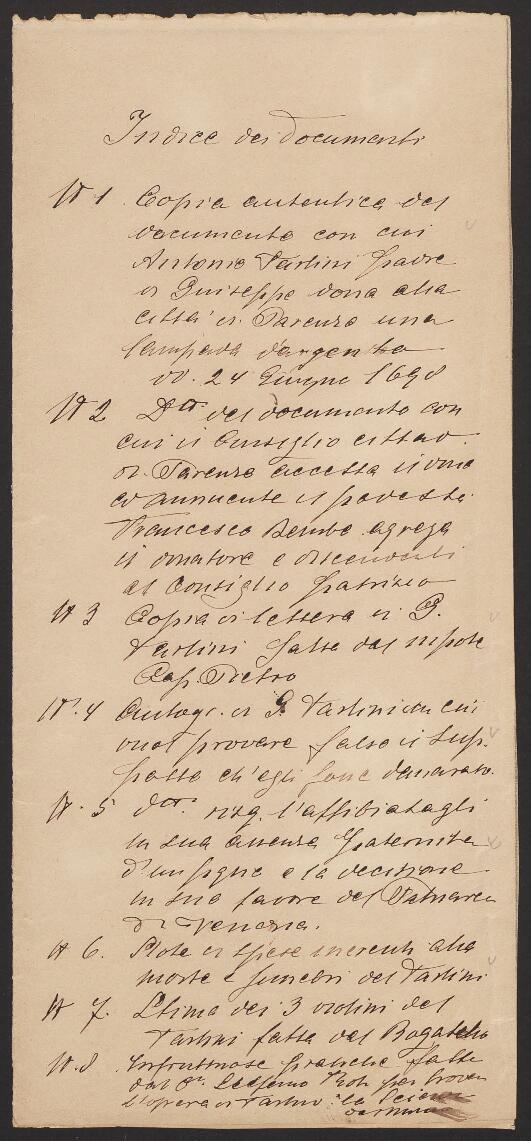 Indice dei documenti
N 1 Copia autentica del
documento con cui
Antonio Tartini padre
di Guiseppe dona alla
città di Parenzo una
lampada d'argento
dd. 24 Giugno 1698
N 2 Dtt. del documento con
cui il Consiglio cittad.
di Parenzo accetta il dono
ed annuente il podestà
Francesco Bembo agrega
il donatore e discendenti
al Consiglio patrizio
N 3 Copia di lettera di G.
Tartini fatta dal nipote
Cap. Pietro
N. 4 Autogr. di G. Tartini in cui
vuol provare falso il sup-
posto ch'egli fosse danaroso.
N. 5 dtt. risg. l'affibiatagli
in sua assenza paternità
d'un figlio e la decisione
in suo favore del Patriarca
di Venezia.
N 6. Note di spese inerenti alla
morte e funebri del Tartini
N 7. Stima dei 3 violini del
Tartini fatta dal Bagatella
N. 8 Infruttuose pratiche fatte
dal Per trovare
l'opera di Tartini: la Scienza